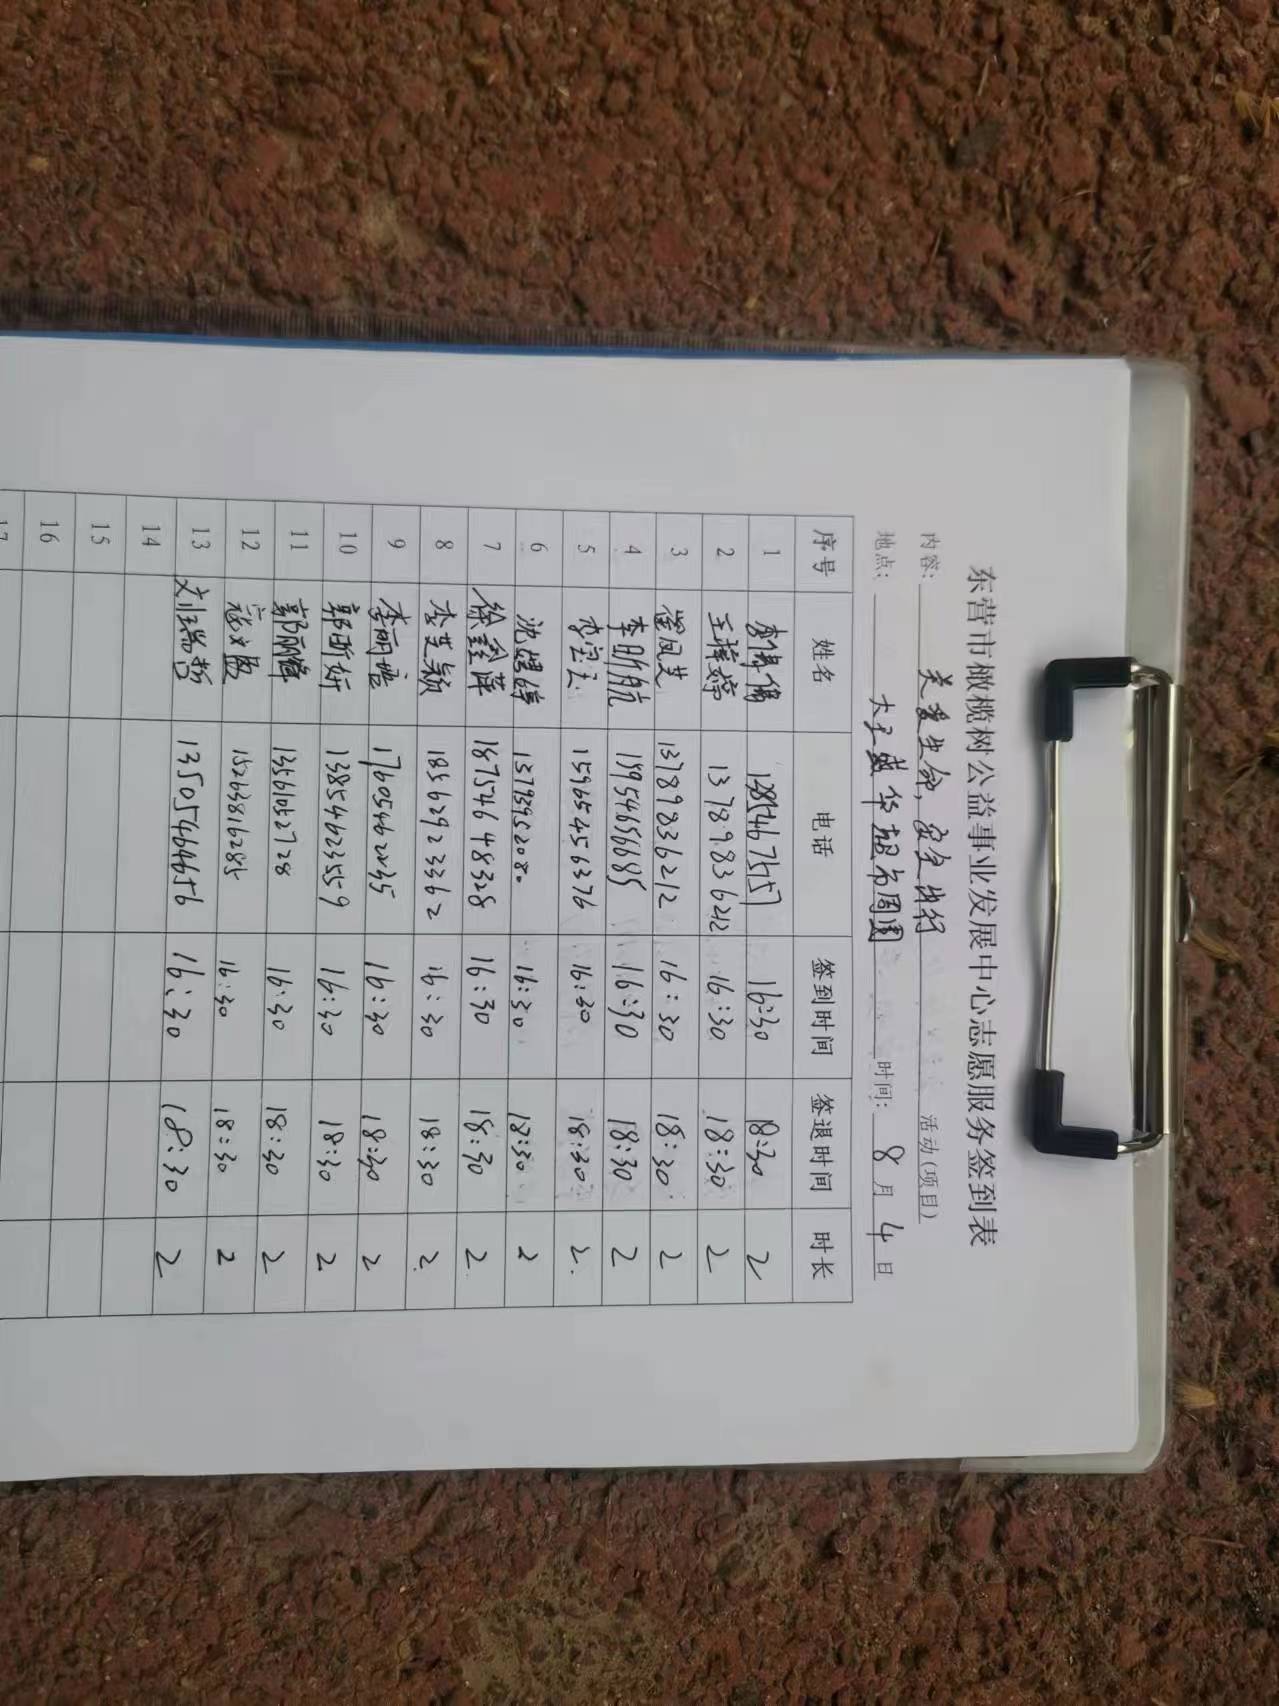 东营市橄榄树公益事业发展中心志愿服务签到表
内容: 关爱生命,安全出行 活动(项目)
地点: 大王盛华超市周围 时间: 8月4日
序号 姓名 电话 签到时间 签退时间 时长
1 16:30 18:30 2
2 王梓婷 13789836212 16:30 18:30 2
3 翟凤芝 13789836212 16:30 18:30 2
4 李昕航 15954656685 16:30 18:30 2
5 李宝玉 15965456376 16:30 18:30 2
6 16:30 18:30 2
7 徐鑫萍 18754648328 16:30 18:30 2
8 李艾颖 18562923362 16:30 18:30 2
9 16:30 18:30 2
10 郭昕妍 13854623559 16:30 18:30 2
11 13561052728 16:30 18:30 2
12 15263816285 16:30 18:30 2
13 13505466656 16:30 18:30 2
14
15
16
17